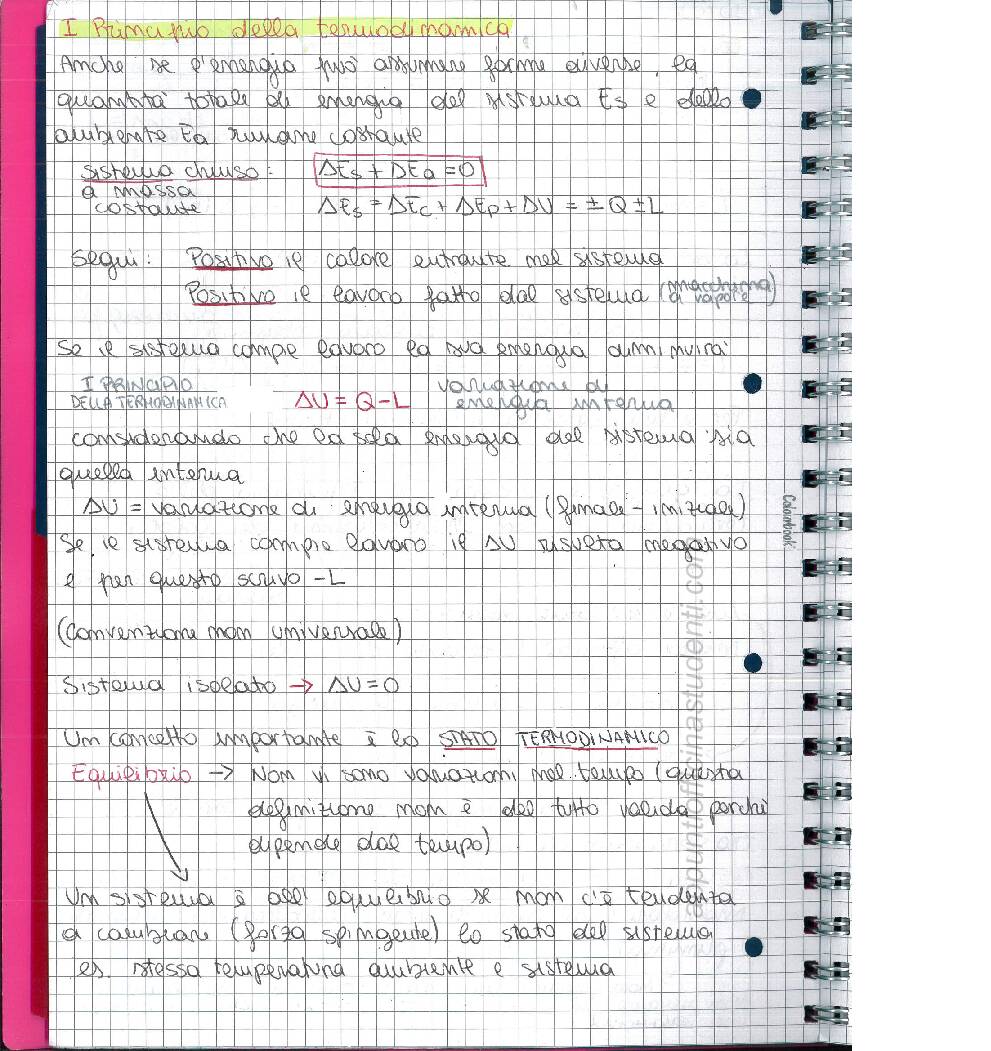 I Principio della termodinamica
Anche se l'energia può assumere forme diverse, la
quantità totale di energia del sistema Es e dello
ambiente Ea rimane costante
sistema chiuso: ΔEs + ΔEa = 0
a massa
costante ΔEs = ΔEc + ΔEp + ΔU = ± Q ± L
Segui: Positivo il calore entrante nel sistema
Positivo il lavoro fatto dal sistema (macchina
a vapore)
Se il sistema compe lavoro la sua energia diminuirà
I PRINCIPIO
DELLA TERMODINAMICA ΔU = Q - L variazione di
energia interna
considerando che la sola energia del sistema sia
quella interna
ΔU = variazione di energia interna (finale - iniziale)
Se il sistema compie lavoro il ΔU risulta negativo
e per questo scrivo -L
(Convenzione non universale)
Sistema isolato → ΔU = 0
Un concetto importante è lo STATO TERMODINAMICO
Equilibrio → Non vi sono variazioni nel tempo (questa
definizione non è del tutto valida perchè
dipende dal tempo)
Un sistema è all'equilibrio se non c'è tendenza
a cambiare (forza spingente) lo stato del sistema
es. stessa temperatura ambiente e sistema
Colorbook
appuntiofficinastudenti.com